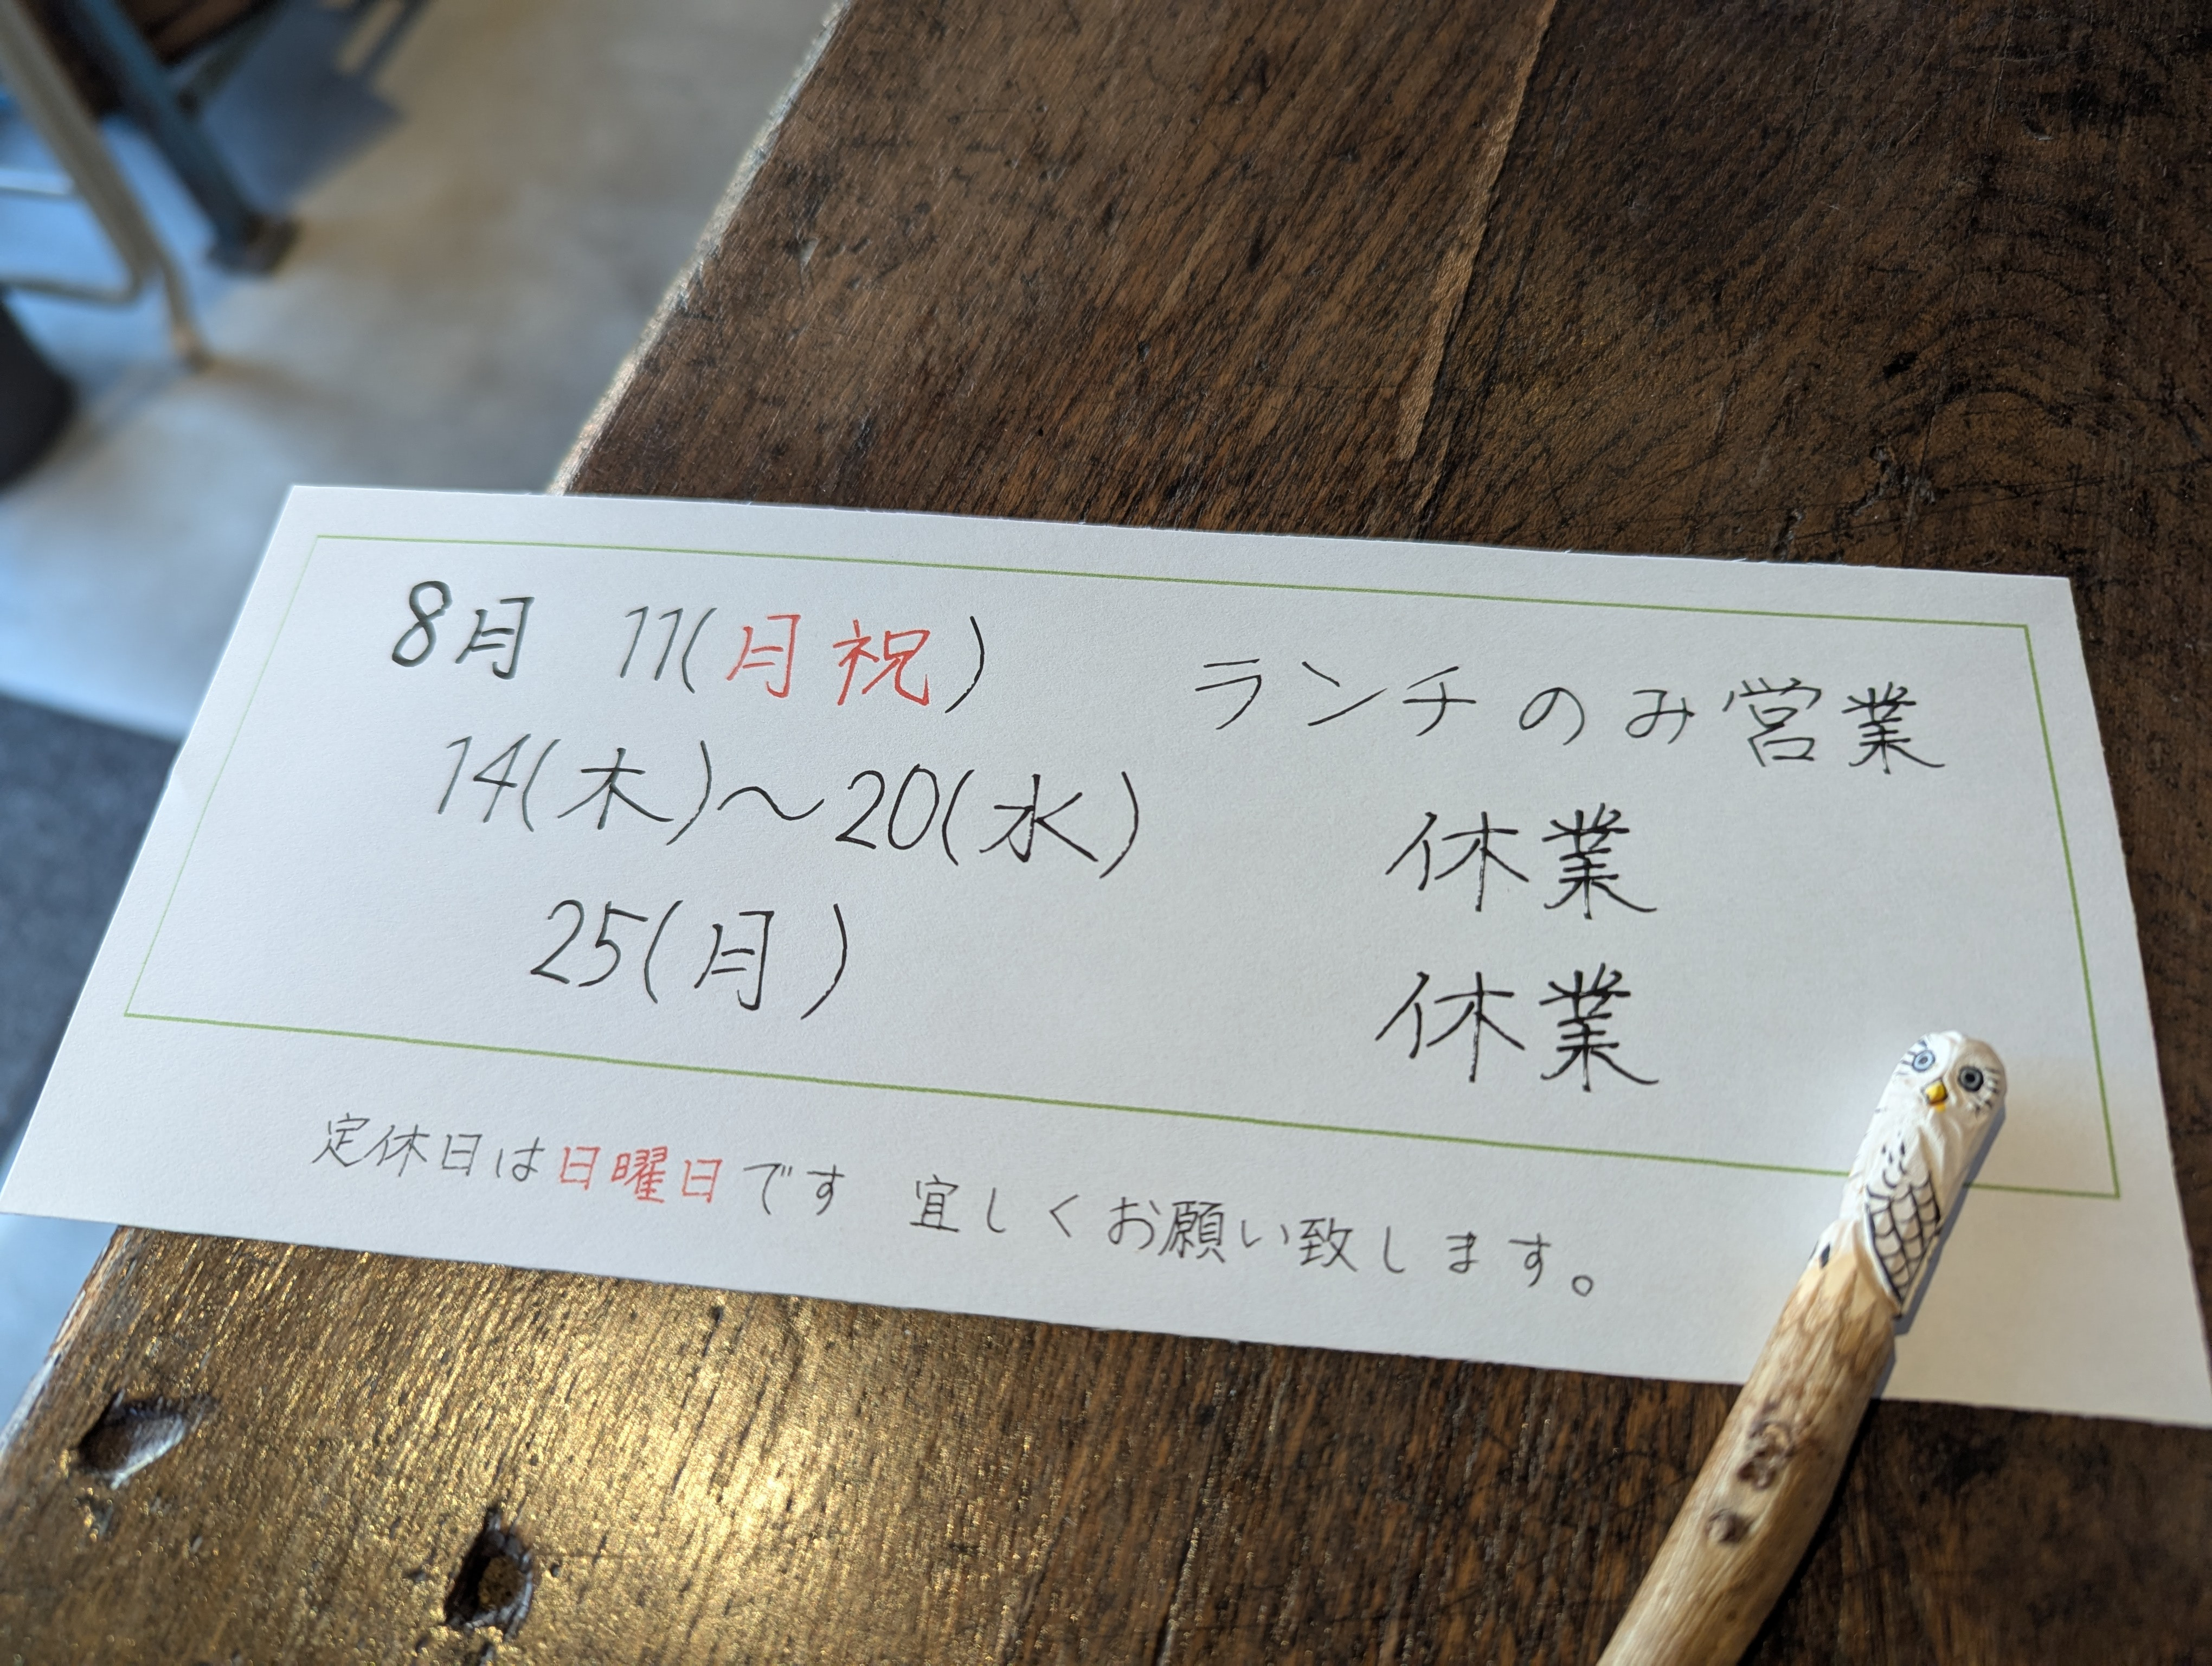 8月 11(月祝) ランチのみ営業
14(木)〜20(水) 休業
25(月) 休業
定休日は日曜日です 宜しくお願い致します。